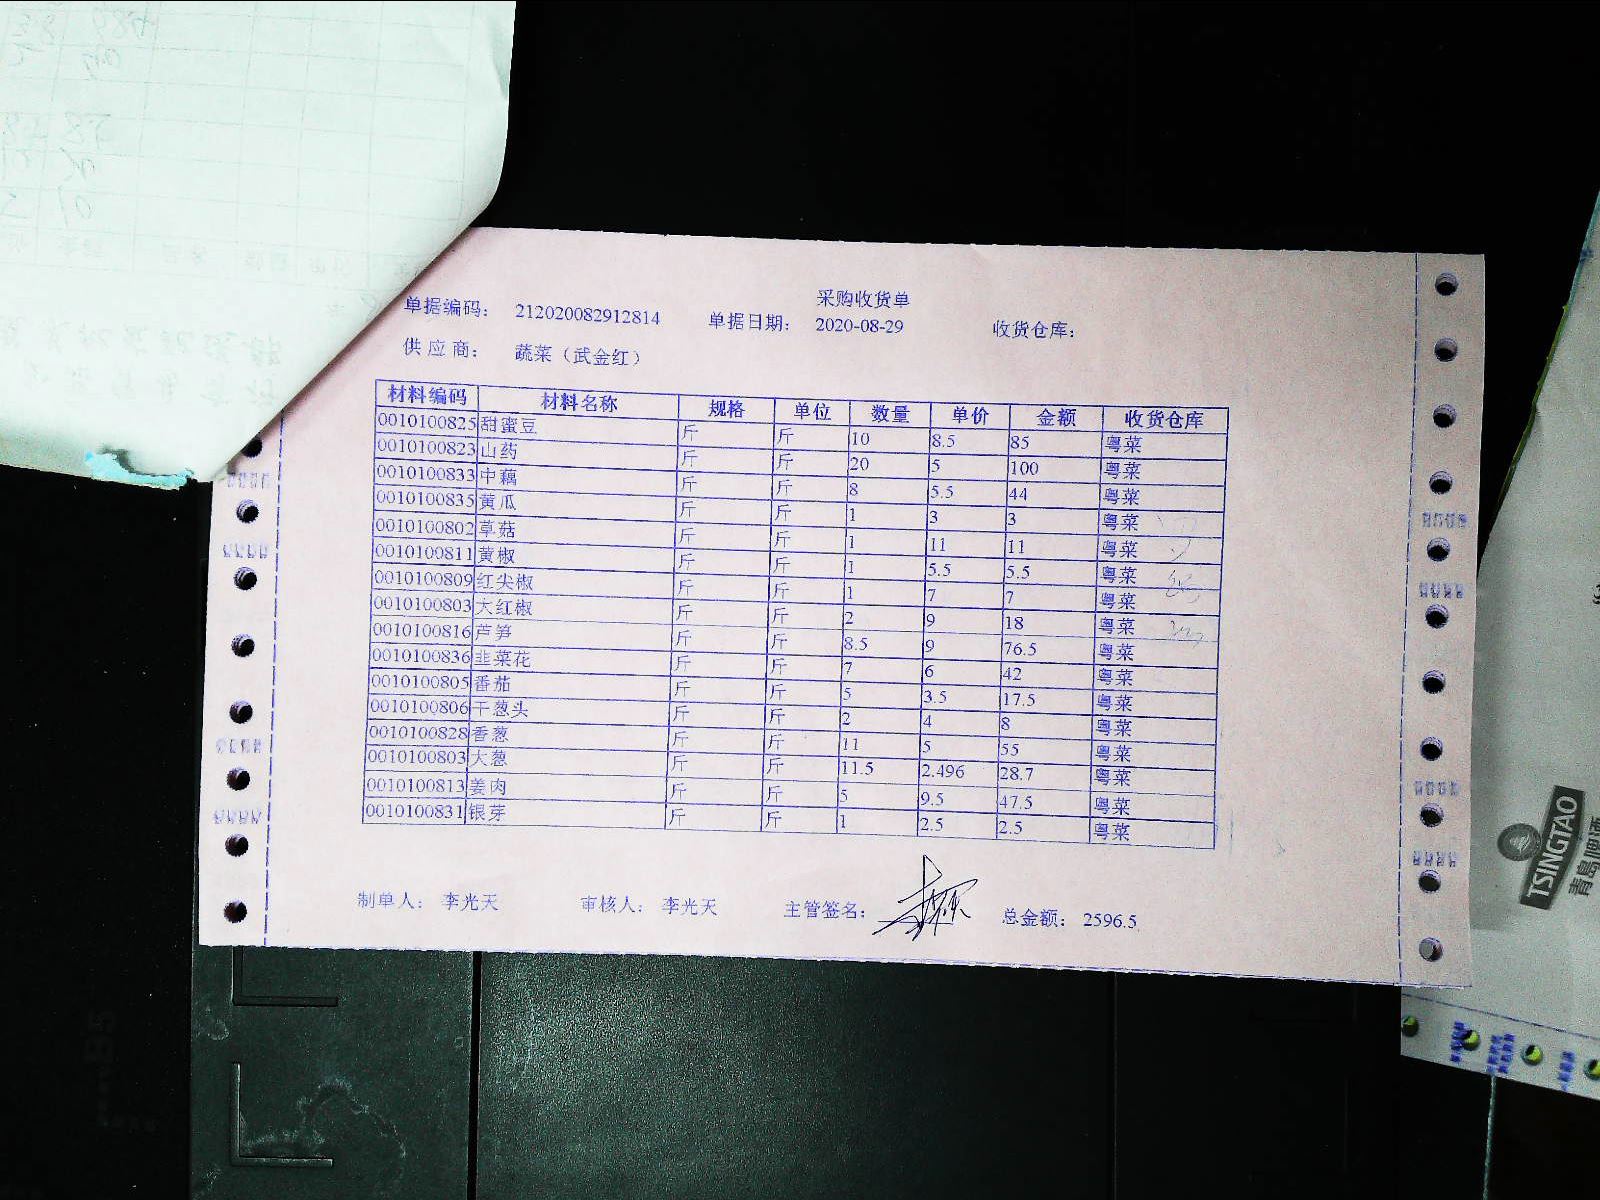 采购收货单
单据编码： 212020082912814 单据日期： 2020-08-29 收货仓库：
供应商： 蔬菜（武金红）
材料编码 材料名称 规格 单位 数量 单价 金额 收货仓库
0010100825 甜蜜豆 斤 斤 10 8.5 85 粤菜
0010100823 山药 斤 斤 20 5 100 粤菜
0010100833 中藕 斤 斤 8 5.5 44 粤菜
0010100835 黄瓜 斤 斤 1 3 3 粤菜
0010100802 草菇 斤 斤 1 11 11 粤菜
0010100811 黄椒 斤 斤 1 5.5 5.5 粤菜
0010100809 红尖椒 斤 斤 1 7 7 粤菜
0010100803 大红椒 斤 斤 2 9 18 粤菜
0010100816 芦笋 斤 斤 8.5 9 76.5 粤菜
0010100836 韭菜花 斤 斤 7 6 42 粤菜
0010100805 番茄 斤 斤 5 3.5 17.5 粤菜
0010100806 干葱头 斤 斤 2 4 8 粤菜
0010100828 香葱 斤 斤 11 5 55 粤菜
0010100803 大葱 斤 斤 11.5 2.496 28.7 粤菜
0010100813 姜肉 斤 斤 5 9.5 47.5 粤菜
0010100831 银芽 斤 斤 1 2.5 2.5 粤菜
制单人： 李光天 审核人： 李光天 主管签名： 总金额： 2596.5
TSINGTAO
青島啤酒